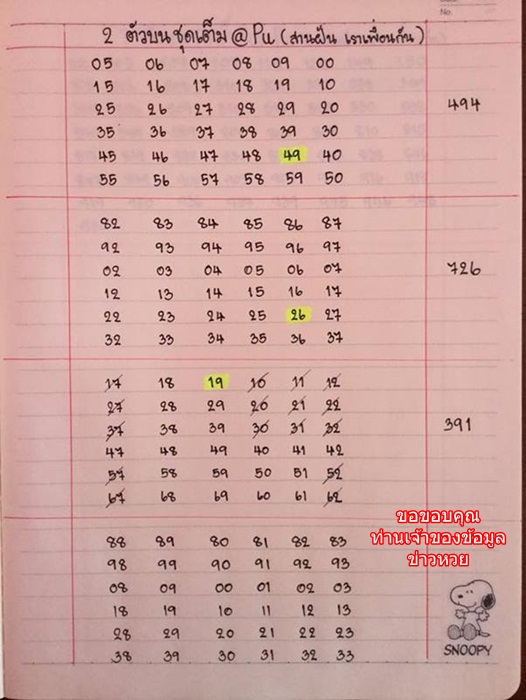 No.
2 ตัวบน ชุดเต็ม @ Pu (สานฝัน เราเพื่อนกัน)
05 06 07 08 09 00
15 16 17 18 19 10
25 26 27 28 29 20 494
35 36 37 38 39 30
45 46 47 48 49 40
55 56 57 58 59 50
82 83 84 85 86 87
92 93 94 95 96 97
02 03 04 05 06 07 726
12 13 14 15 16 17
22 23 24 25 26 27
32 33 34 35 36 37
17 18 19 10 11 12
27 28 29 20 21 22
37 38 39 30 31 32 391
47 48 49 40 41 42
57 58 59 50 51 52
67 68 69 60 61 62
ขอขอบคุณ
ท่านเจ้าของข้อมูล
ข่าวหวย
88 89 80 81 82 83
98 99 90 91 92 93
08 09 00 01 02 03
18 19 10 11 12 13
28 29 20 21 22 23
38 39 30 31 32 33
SNOOPY